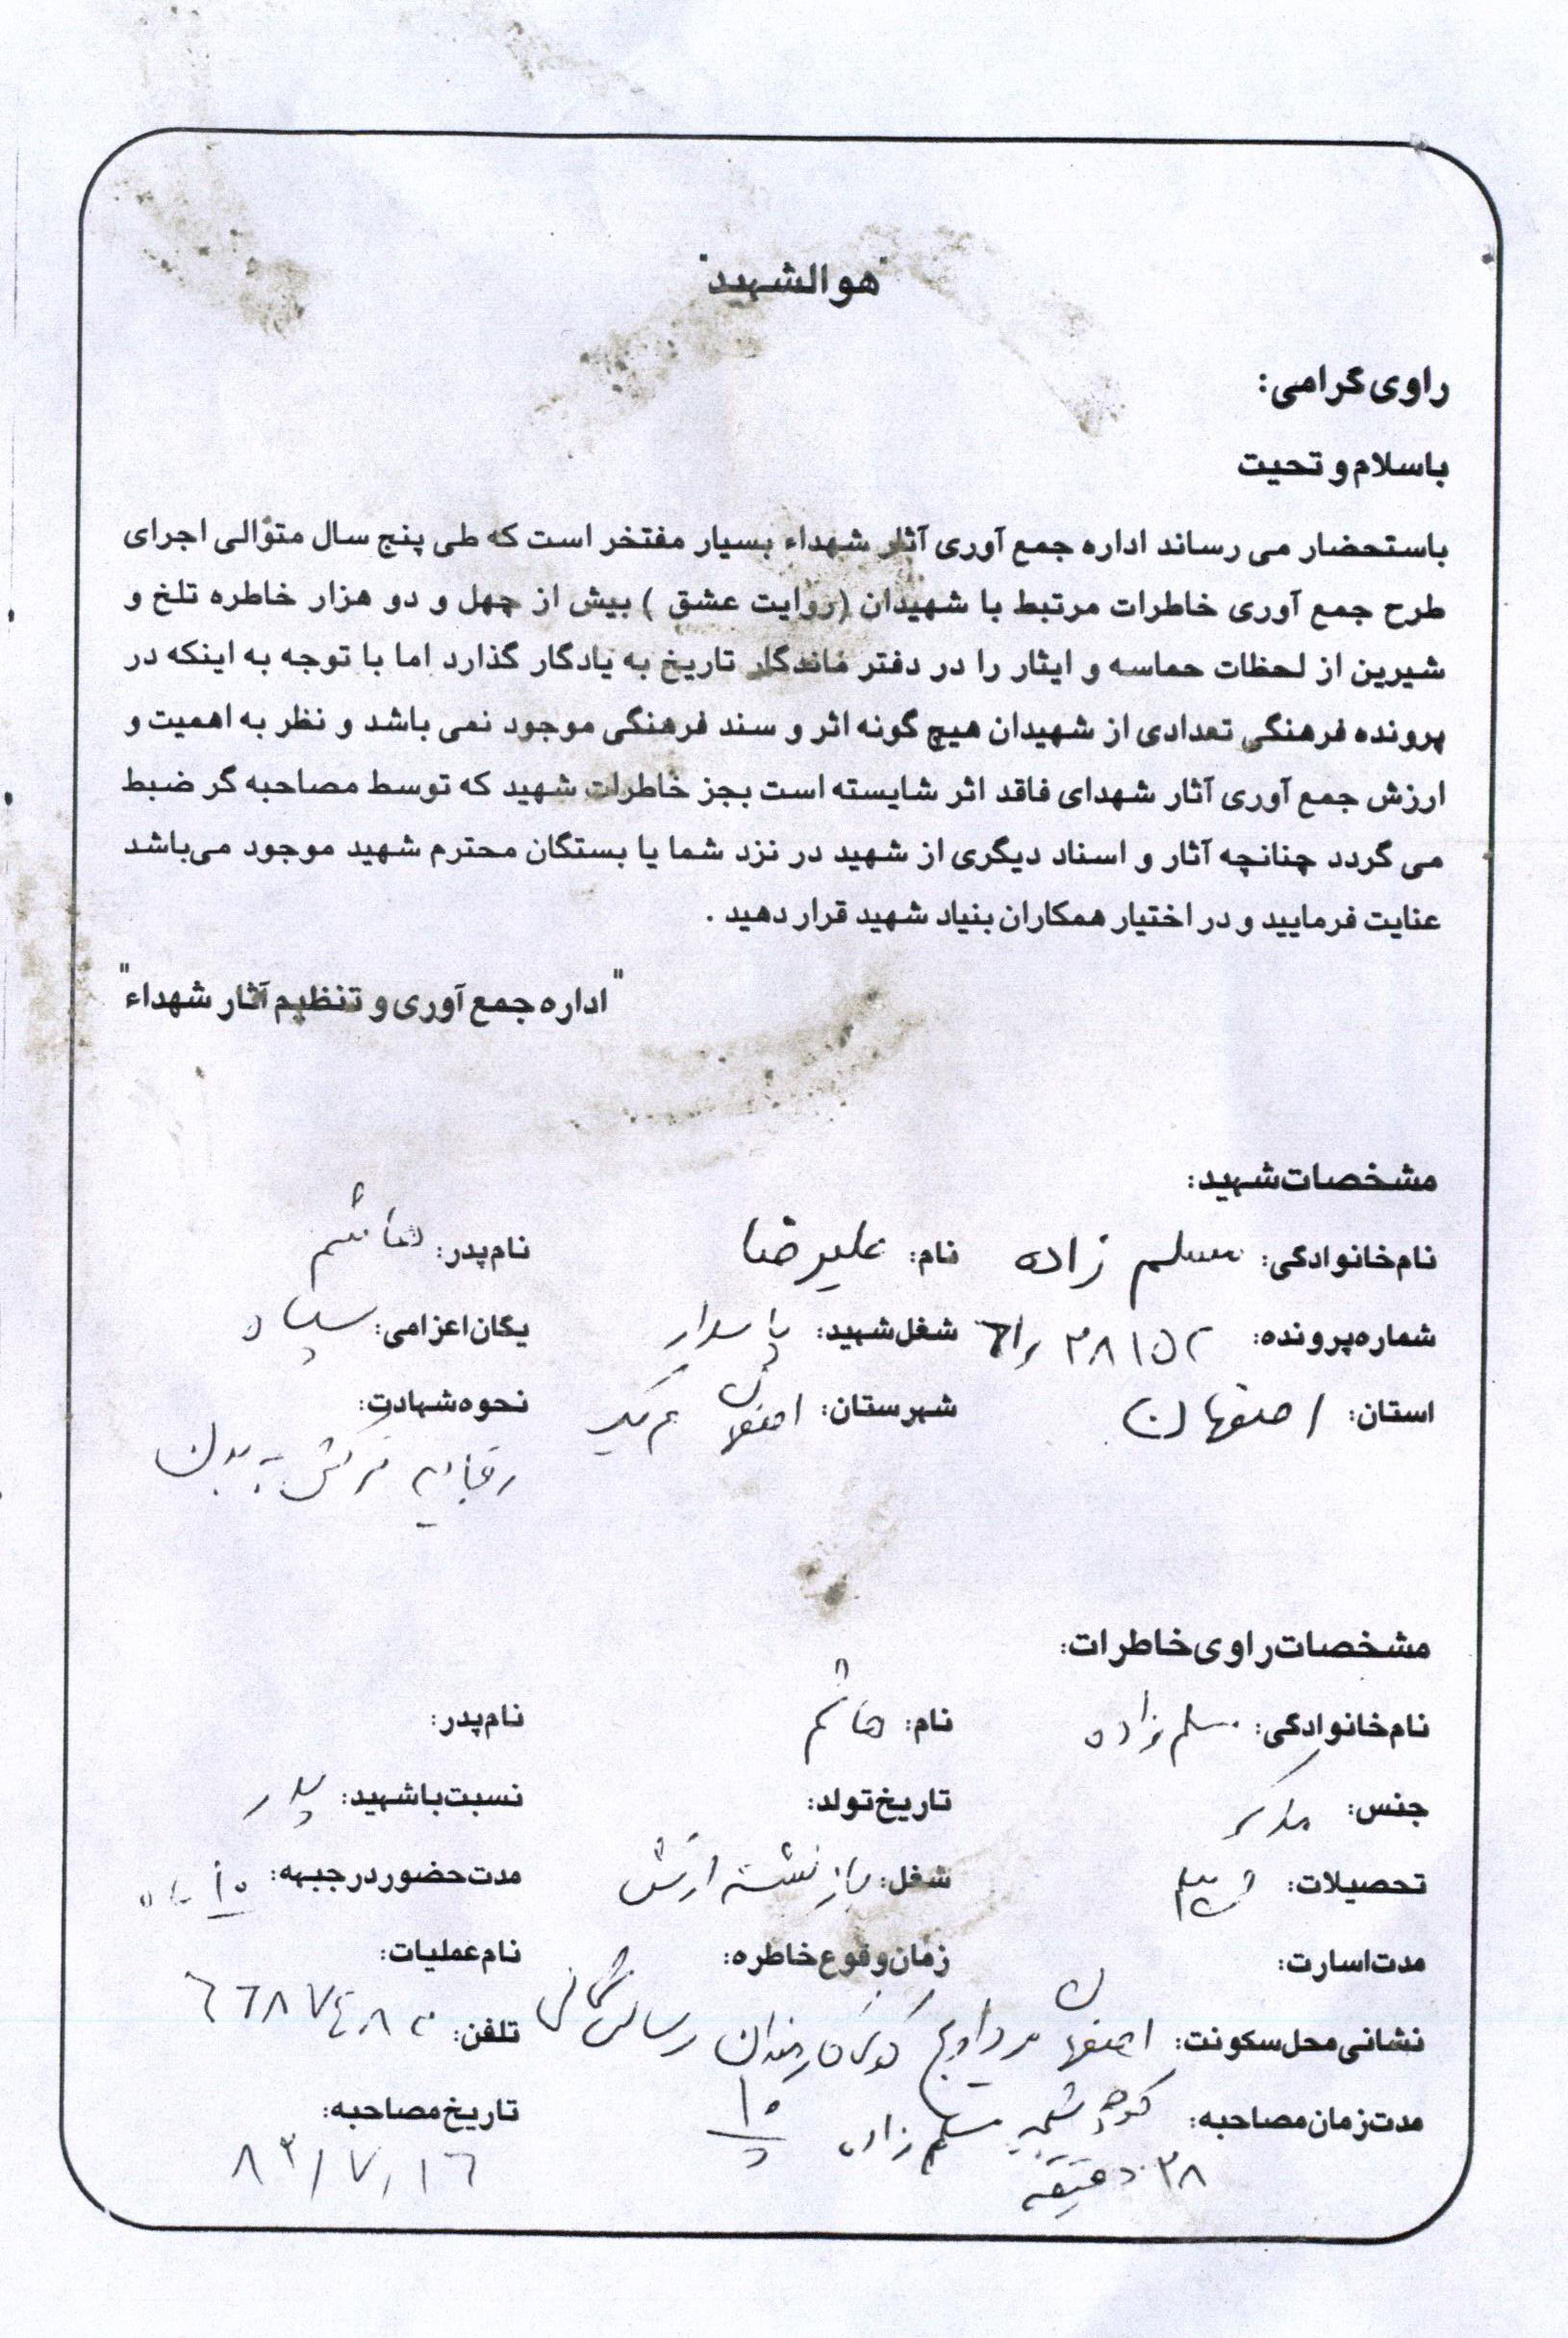 "هوالشهید"
راوی گرامی:
باسلام و تحیت
باستحضار می رساند اداره جمع آوری آثار شهداء بسیار مفتخر است که طی پنج سال متوالی اجرای
طرح جمع آوری خاطرات مرتبط با شهیدان (روایت عشق ) بیش از چهل و دو هزار خاطره تلخ و
شیرین از لحظات حماسه و ایثار را در دفتر ماندگار تاریخ به یادگار گذارد اما با توجه به اینکه در
پرونده فرهنگی تعدادی از شهیدان هیچ گونه اثر و سند فرهنگی موجود نمی باشد و نظر به اهمیت و
ارزش جمع آوری آثار شهدای فاقد اثر شایسته است بجز خاطرات شهید که توسط مصاحبه گر ضبط
می گردد چنانچه آثار و اسناد دیگری از شهید در نزد شما یا بستگان محترم شهید موجود می‌باشد
عنایت فرمایید و در اختیار همکاران بنیاد شهید قرار دهید .
"اداره جمع آوری و تنظیم آثار شهداء"
مشخصات شهید:
نام خانوادگی: مسلم زاده نام: علیرضا نام پدر: هاشم
شماره پرونده: شغل شهید: پاسدار یگان اعزامی: سپاه
استان: اصفهان شهرستان: اصفهان نحوه شهادت:
ترکش به بدن
مشخصات راوی خاطرات:
نام خانوادگی: مسلم زاده نام: هاشم نام پدر:
جنس: مذکر تاریخ تولد: نسبت با شهید: پدر
تحصیلات: شغل: بازنشسته ارتش مدت حضور در جبهه:
مدت اسارت: زمان وقوع خاطره: نام عملیات:
نشانی محل سکونت: اصفهان مرداویج تلفن:
کوچه شهید مسلم زاده
مدت زمان مصاحبه: ۳۸ دقیقه تاریخ مصاحبه:
۸۳/۷/۱۶